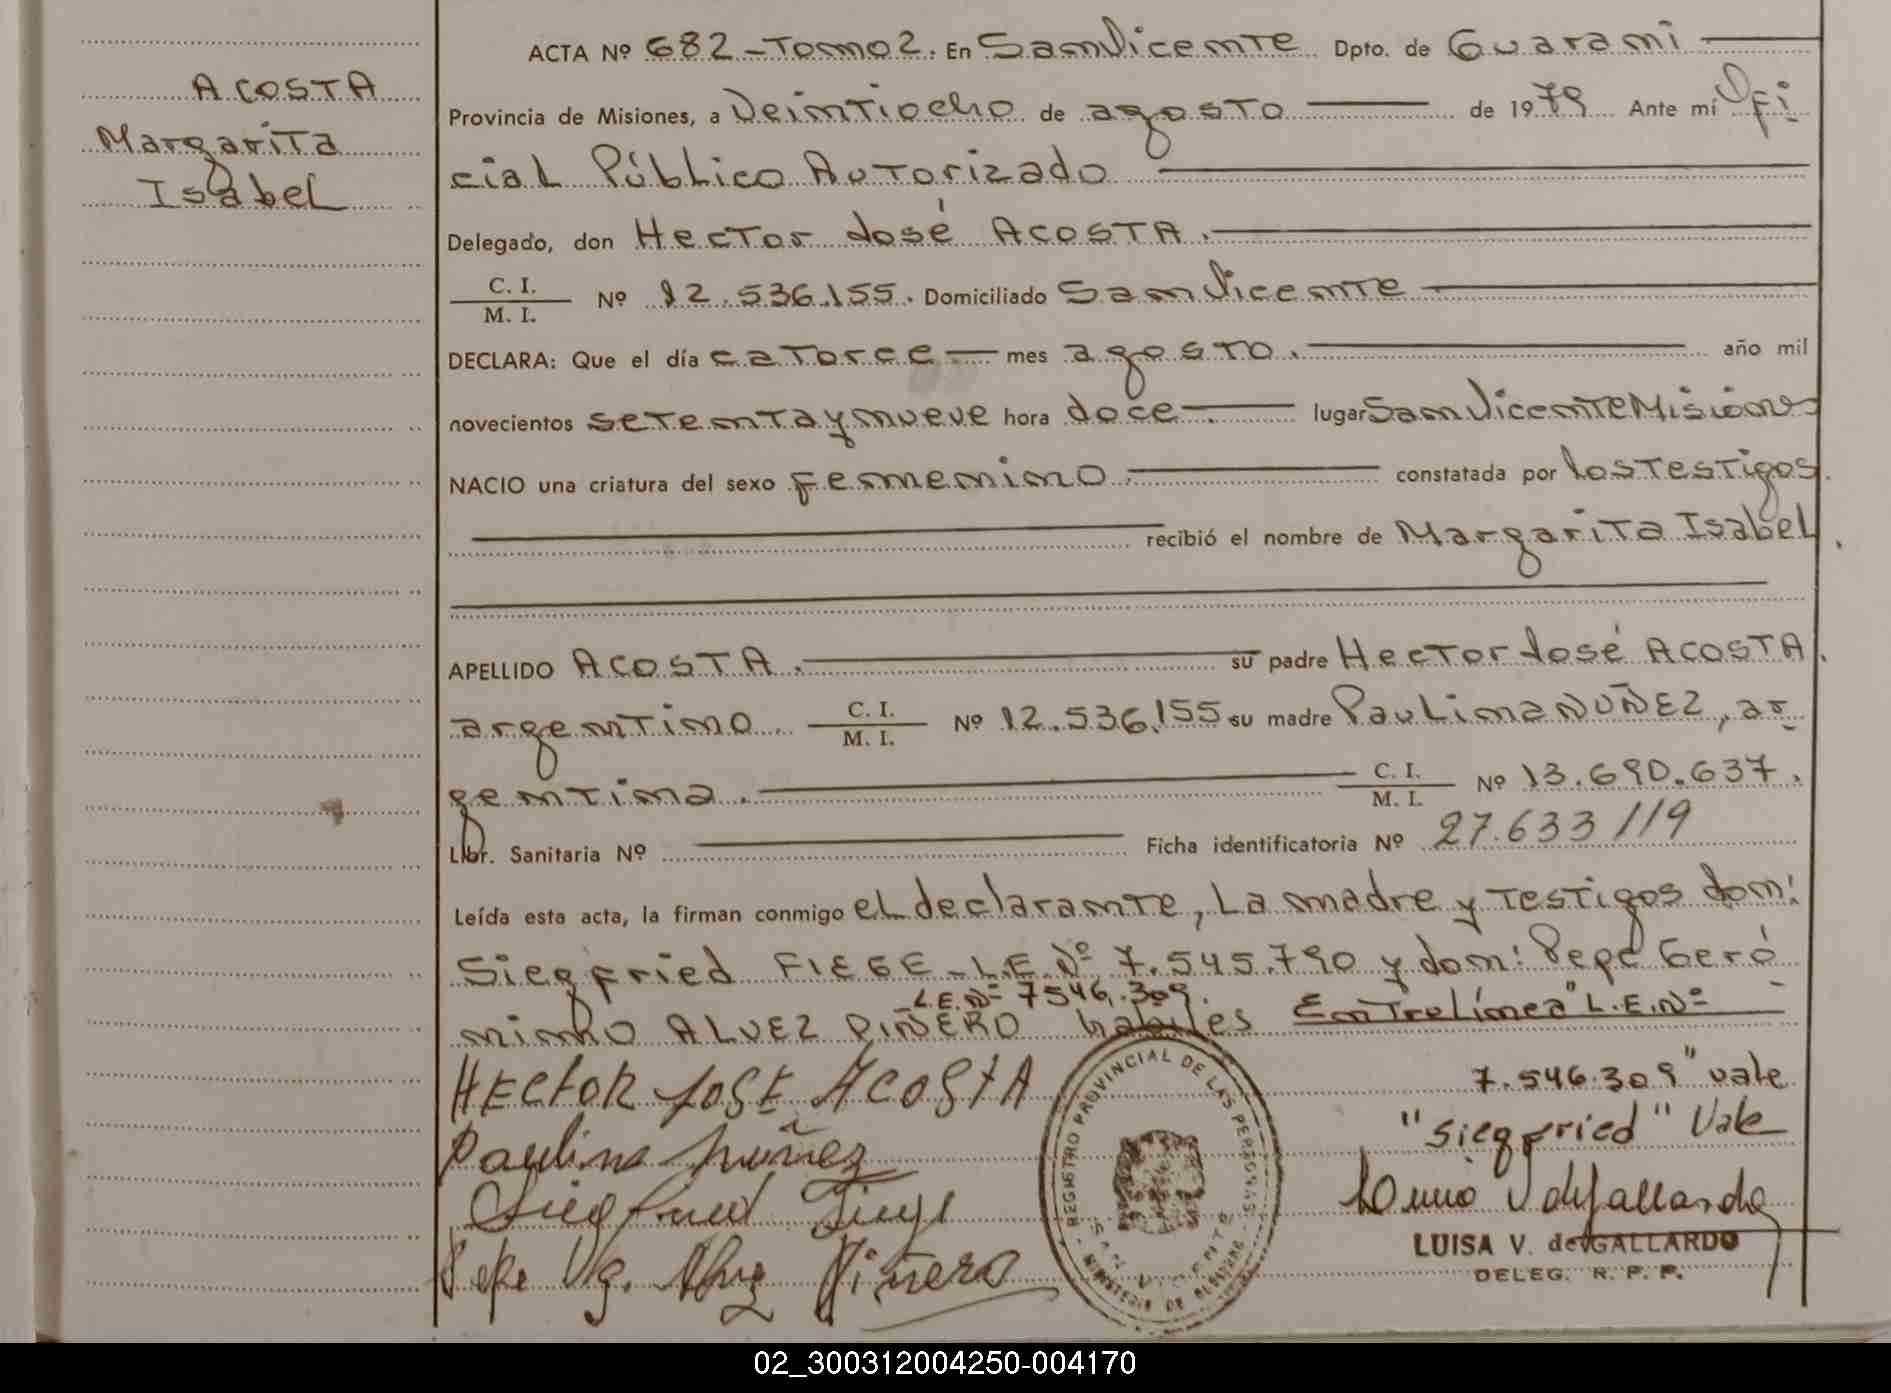 ACOSTA
Margarita
Isabel
ACTA Nº 682-Tomo 2. En San Vicente Dpto. de Guaraní
Provincia de Misiones, a Veintiocho de agosto de 1979 Ante mí Ofi
cial Público Autorizado
Delegado, don Hector José ACOSTA.
C. I.
M. I. Nº 12.536.155. Domiciliado San Vicente
DECLARA: Que el día catorce mes agosto. año mil
novecientos setenta y nueve hora doce lugar San Vicente Misiones
NACIO una criatura del sexo femenino. constatada por los testigos.
recibió el nombre de Margarita Isabel.
APELLIDO ACOSTA. su padre Hector José ACOSTA.
argentino C. I. M. I. Nº 12.536.155 su madre Paulina NUÑEZ, ar
gentina. C. I. M. I. Nº 13.690.637.
Libr. Sanitaria Nº Ficha identificatoria Nº 27.633119
Leída esta acta, la firman conmigo el declarante, La madre y testigos don:
Siegfried FIEGE-L.E.Nº 7.545.790 y don: Pepe Geró
L.E.Nº 7546.309.
nimho ALVEZ PIÑERO habiles Entrelínea "L.E.Nº
7.546.309" vale
"Siegfried" Vale
HECTOR JOSE ACOSTA
Paulina Nuñez
Siegfried Fiege
Pepe Alvez Piñero
REGISTRO PROVINCIAL DE LAS PERSONAS
SAN VICENTE
MINISTERIO DE GOBIERNO
LUISA V. de GALLARDO
DELEG. R. P. P.
02_300312004250-004170